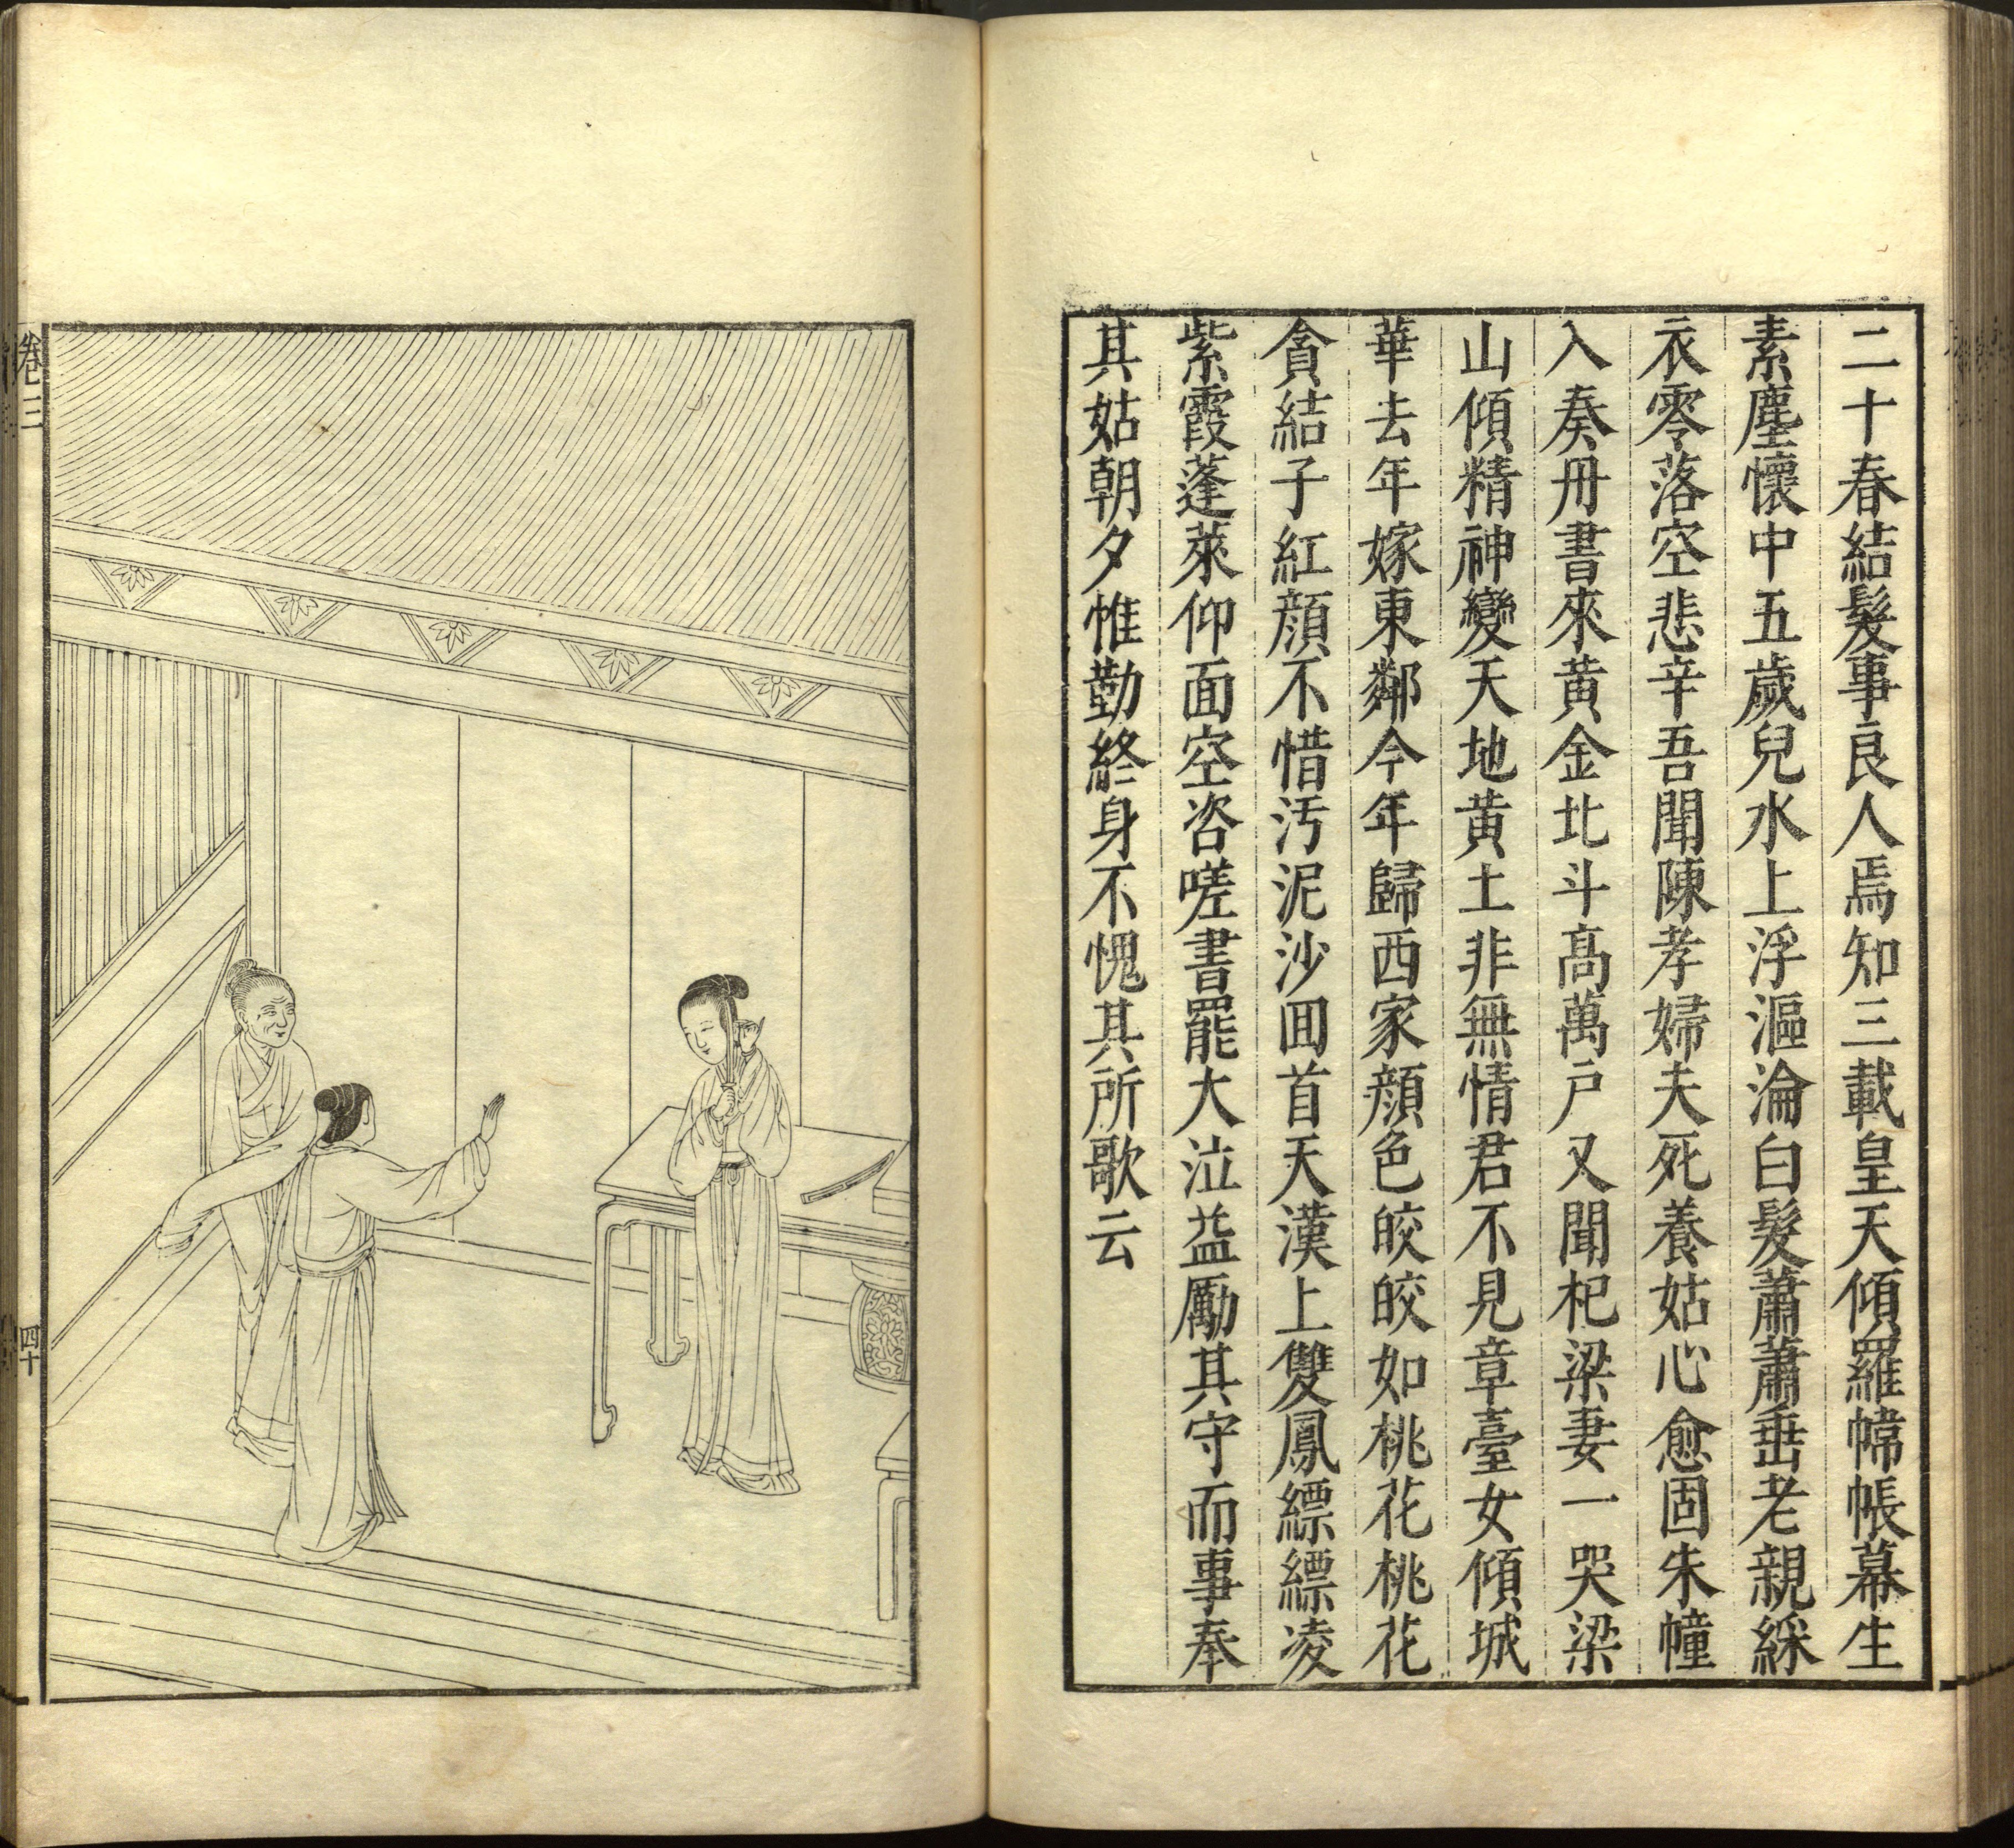 二十春結髮事良人焉知三載皇天傾羅幃帳幕生
素塵懷中五歲兒水上浮漚淪白髮蕭蕭垂老親綵
衣零落空悲辛吾聞陳孝婦夫死養姑心愈固朱幢
入奏丹書來黃金北斗高萬戶又聞杞梁妻一哭梁
山傾精神變天地黃土非無情君不見章臺女傾城
華去年嫁東鄰今年歸西家顏色皎皎如桃花桃花
貪結子紅顏不惜汚泥沙囬首天漢上雙鳳縹縹凌
紫霞蓬萊仰面空咨嗟書罷大泣益勵其守而事奉
其姑朝夕惟勤終身不愧其所歌云
卷三
四十